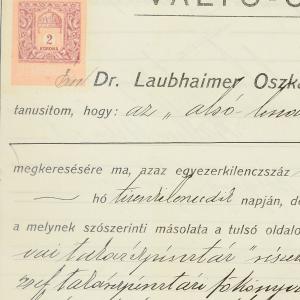 VÁLTÓ-
2
KORONA
Én Dr. Laubhaimer Oszká
tanusitom, hogy: az „ alsó
megkeresésére ma, azaz egyezerkilenczszáz
hó tizenkilencedik napján, de
a melynek szószerinti másolata a tulsó oldalo
vai takarékpénztár" részv
takarékpénztári